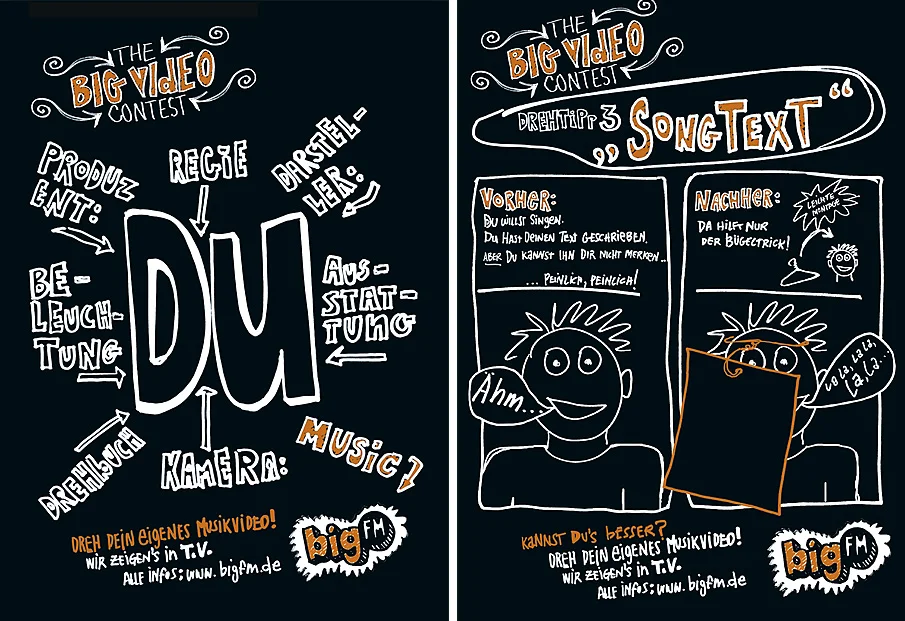 THE
BIG VIDEO
CONTEST
PRODUZ
ENT:
REGIE
DARSTEL-
LER:
DU
BE-
LEUCH-
TUNG
AUS-
STAT-
TUNG
DREHBUCH
KAMERA:
MUSIC
DREH DEIN EIGENES MUSIKVIDEO!
WIR ZEIGEN'S IN T.V.
ALLE INFOS: WWW.BIGFM.DE
big FM
THE
BIG VIDEO
CONTEST
DREHTIPP 3
„SONGTEXT“
VORHER:
DU WILLST SINGEN.
DU HAST DEINEN TEXT GESCHRIEBEN.
ABER DU KANNST IHN DIR NICHT MERKEN..
... PEINLICH, PEINLICH!
Ähm...
NACHHER:
DA HILFT NUR
DER BÜGELTRICK!
LEICHTE
MONTAGE
La La, La La,
La, La...
KANNST DU'S BESSER?
DREH DEIN EIGENES MUSIKVIDEO!
WIR ZEIGEN'S IN T.V.
ALLE INFOS: WWW.BIGFM.DE
big FM